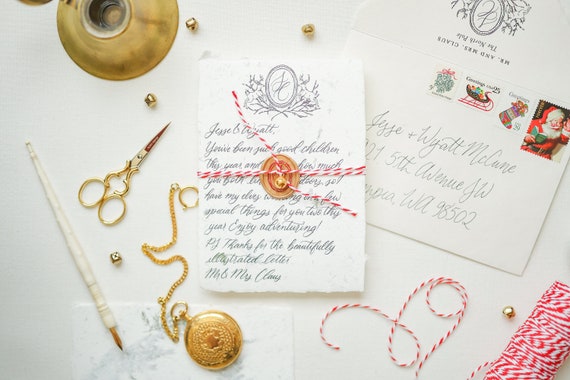 Jesse & Wyatt,
You've been such good children
this year and how much
you both so I
have my elves a few
special things for you two this
year. Enjoy adventuring!
PS Thanks for the beautifully
illustrated letter
Mr & Mrs Claus
MR. AND MRS. CLAUS
The North Pole
Greetings
Greetings
Jesse + Wyatt McCune
21 5th Avenue SW
WA 98502